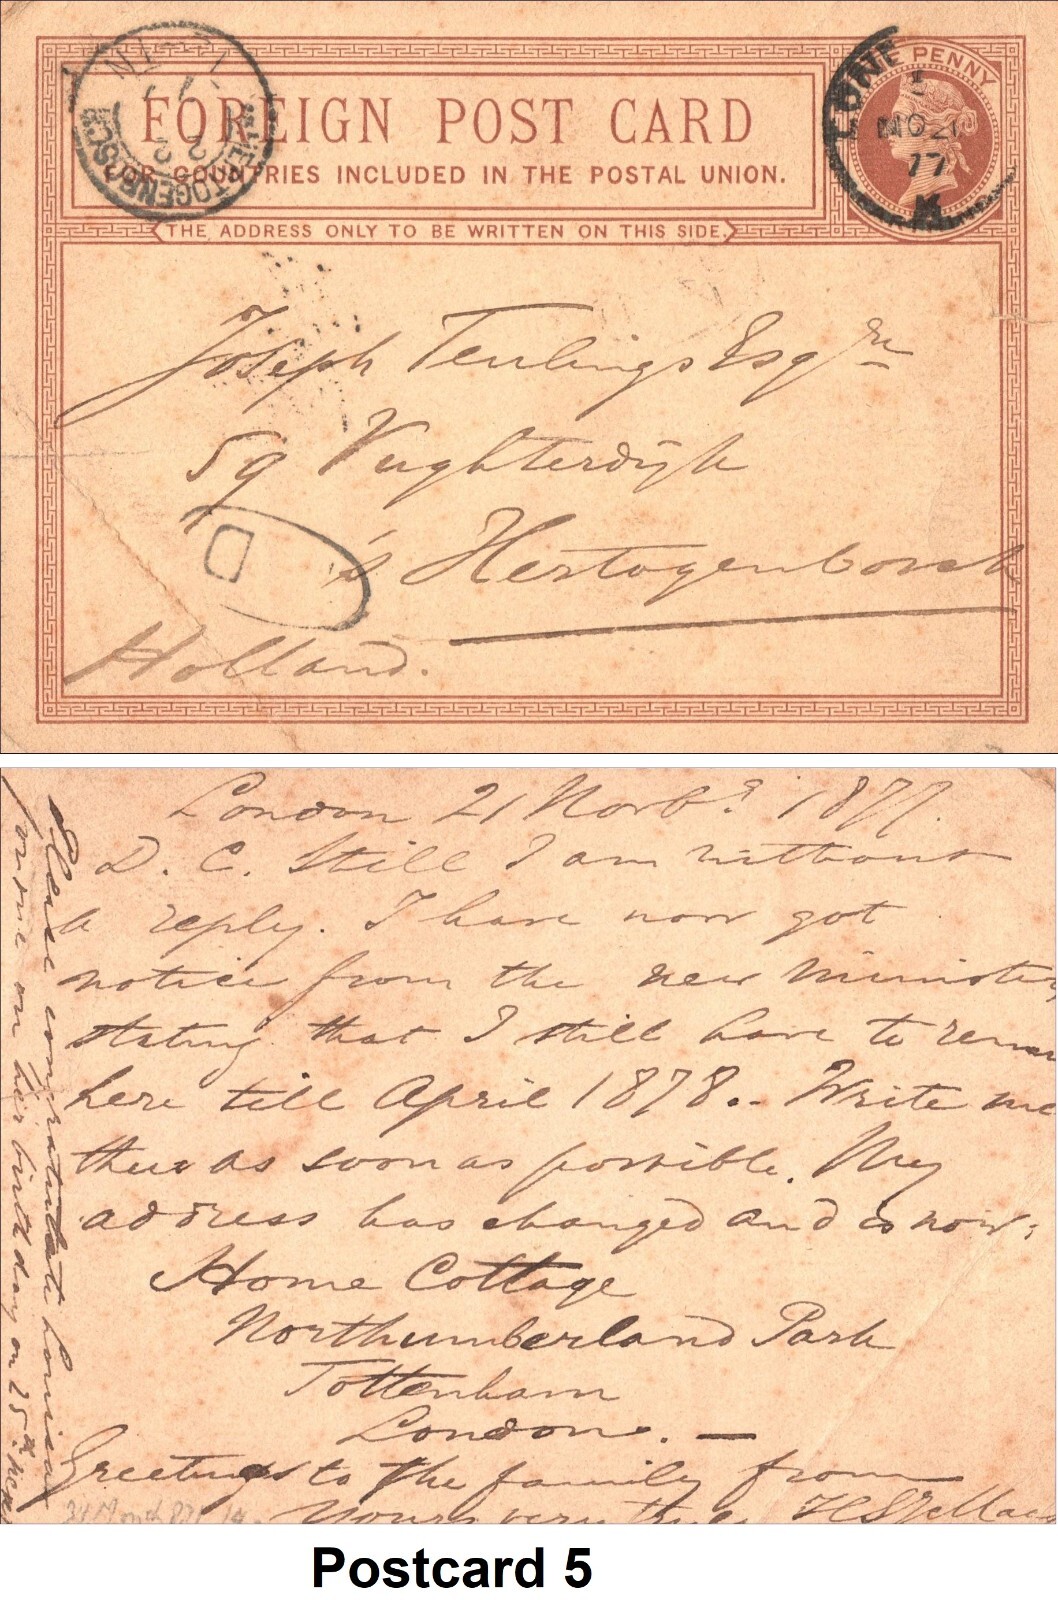 FOREIGN POST CARD
FOR COUNTRIES INCLUDED IN THE POSTAL UNION.
THE ADDRESS ONLY TO BE WRITTEN ON THIS SIDE.
ONE PENNY
LONDON
NO 21
77
K
'S HERTOGENBOSCH
Joseph Teulings Esqre
59 Vughterdijk
D
's Hertogenbosch
Holland.
London 21 Novbr. 1877.
D. C. Still I am without
a reply. I have now got
notice from the new minister
stating that I still have to
here till April 1878.. Write me
thus as soon as possible. My
address has changed and is now:
Home Cottage
Northumberland Park
Tottenham
London. —
Greetings to the family from
Yours very truly
Please congratulate Louisa
for me on her birth day on 25th
Postcard 5